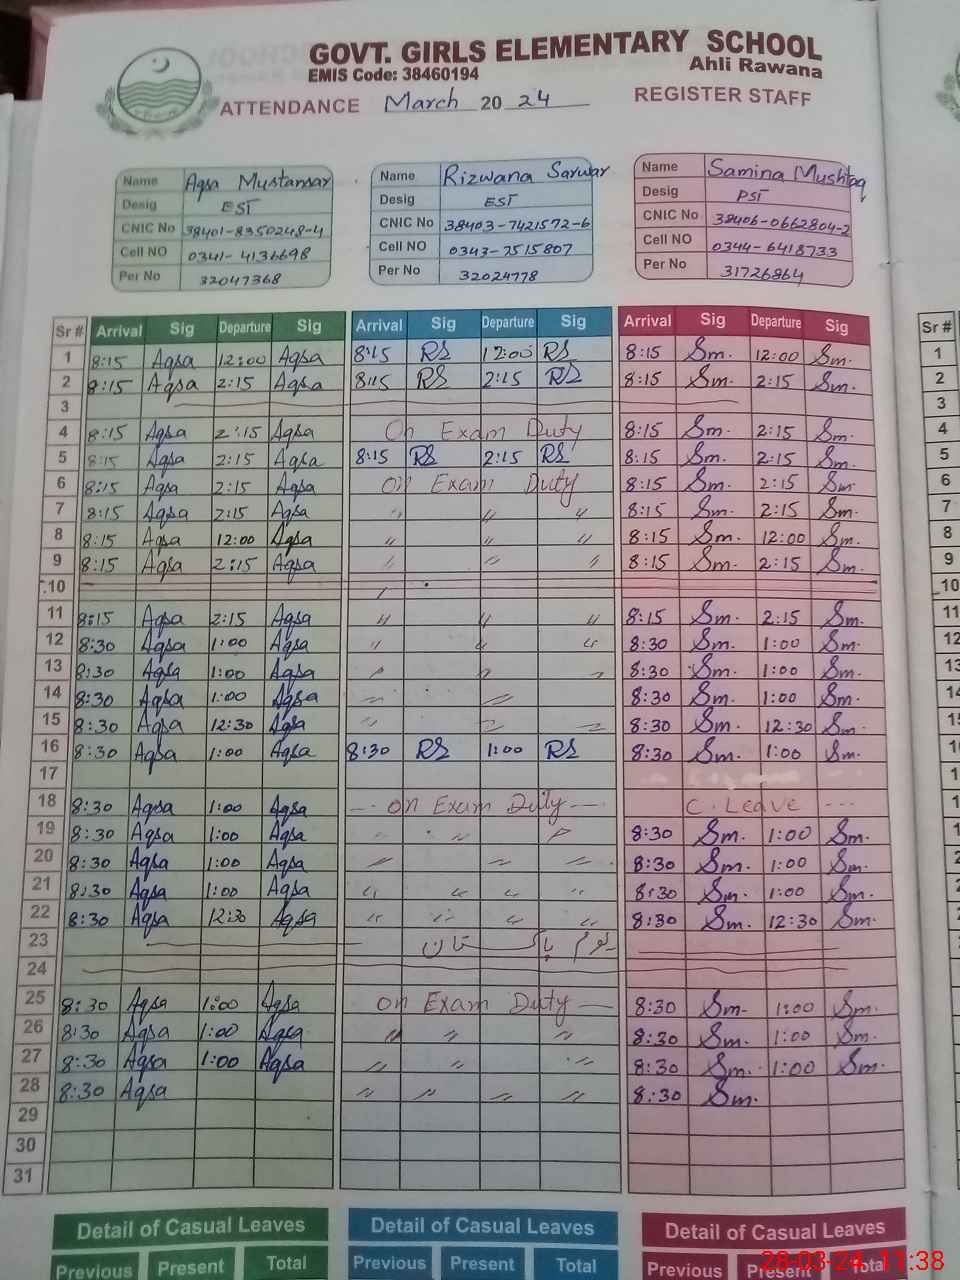 GOVT. GIRLS ELEMENTARY SCHOOL
EMIS Code: 38460194 Ahli Rawana
ATTENDANCE March 2024 REGISTER STAFF
Name Aqsa Mustansar Name Rizwana Sarwar Name Samina Mushtaq
Desig EST Desig EST Desig PST
CNIC No 38401-8350248-4 CNIC No 38403-7421572-6 CNIC No 38406-0662804-2
Cell NO 0341-4136698 Cell NO 0343-7515807 Cell NO 0344-6418733
Per No 32047368 Per No 32024778 Per No 31726864
Sr # Arrival Sig Departure Sig Arrival Sig Departure Sig Arrival Sig Departure Sig Sr #
1 8:15 Aqsa 12:00 Aqsa 8:15 RS 12:00 RS 8:15 Sm. 12:00 Sm. 1
2 8:15 Aqsa 2:15 Aqsa 8:15 RS 2:15 RS 8:15 Sm. 2:15 Sm. 2
3 3
4 8:15 Aqsa 2:15 Aqsa On Exam Duty 8:15 Sm. 2:15 Sm. 4
5 8:15 Aqsa 2:15 Aqsa 8:15 RS 2:15 RS 8:15 Sm. 2:15 Sm. 5
6 8:15 Aqsa 2:15 Aqsa on Exam Duty 8:15 Sm. 2:15 Sm 6
7 8:15 Aqsa 2:15 Aqsa " " " 8:15 Sm. 2:15 Sm. 7
8 8:15 Aqsa 12:00 Aqsa " " " 8:15 Sm. 12:00 Sm. 8
9 8:15 Aqsa 2:15 Aqsa " " " 8:15 Sm. 2:15 Sm. 9
10 10
11 8:15 Aqsa 2:15 Aqsa " " " 8:15 Sm. 2:15 Sm. 11
12 8:30 Aqsa 1:00 Aqsa " " " 8:30 Sm. 1:00 Sm. 12
13 8:30 Aqsa 1:00 Aqsa " " " 8:30 Sm. 1:00 Sm. 13
14 8:30 Aqsa 1:00 Aqsa " " 8:30 Sm. 1:00 Sm. 14
15 8:30 Aqsa 12:30 Aqsa " " " 8:30 Sm. 12:30 Sm.
16 8:30 Aqsa 1:00 Aqsa 8:30 RS 1:00 RS 8:30 Sm. 1:00 Sm.
17
18 8:30 Aqsa 1:00 Aqsa on Exam Duty C. Leave
19 8:30 Aqsa 1:00 Aqsa " " " 8:30 Sm. 1:00 Sm.
20 8:30 Aqsa 1:00 Aqsa " " " 8:30 Sm. 1:00 Sm.
21 8:30 Aqsa 1:00 Aqsa " " " " 8:30 Sm. 1:00 Sm.
22 8:30 Aqsa 12:30 Aqsa " " " " 8:30 Sm. 12:30 Sm.
23 یوم پاکستان
24
25 8:30 Aqsa 1:00 Aqsa on Exam Duty 8:30 Sm. 1:00 Sm.
26 8:30 Aqsa 1:00 Aqsa " " " 8:30 Sm. 1:00 Sm.
27 8:30 Aqsa 1:00 Aqsa " " " 8:30 Sm. 1:00 Sm.
28 8:30 Aqsa " " " " 8:30 Sm.
29
30
31
Detail of Casual Leaves Detail of Casual Leaves Detail of Casual Leaves
Previous Present Total Previous Present Total Previous Present Total
28-03-24 11:38